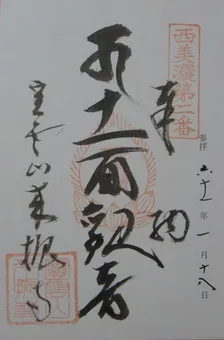 西美濃第二番
奉納
参拝 六十一年一月十八日
十一面観音
宝雲山来振寺